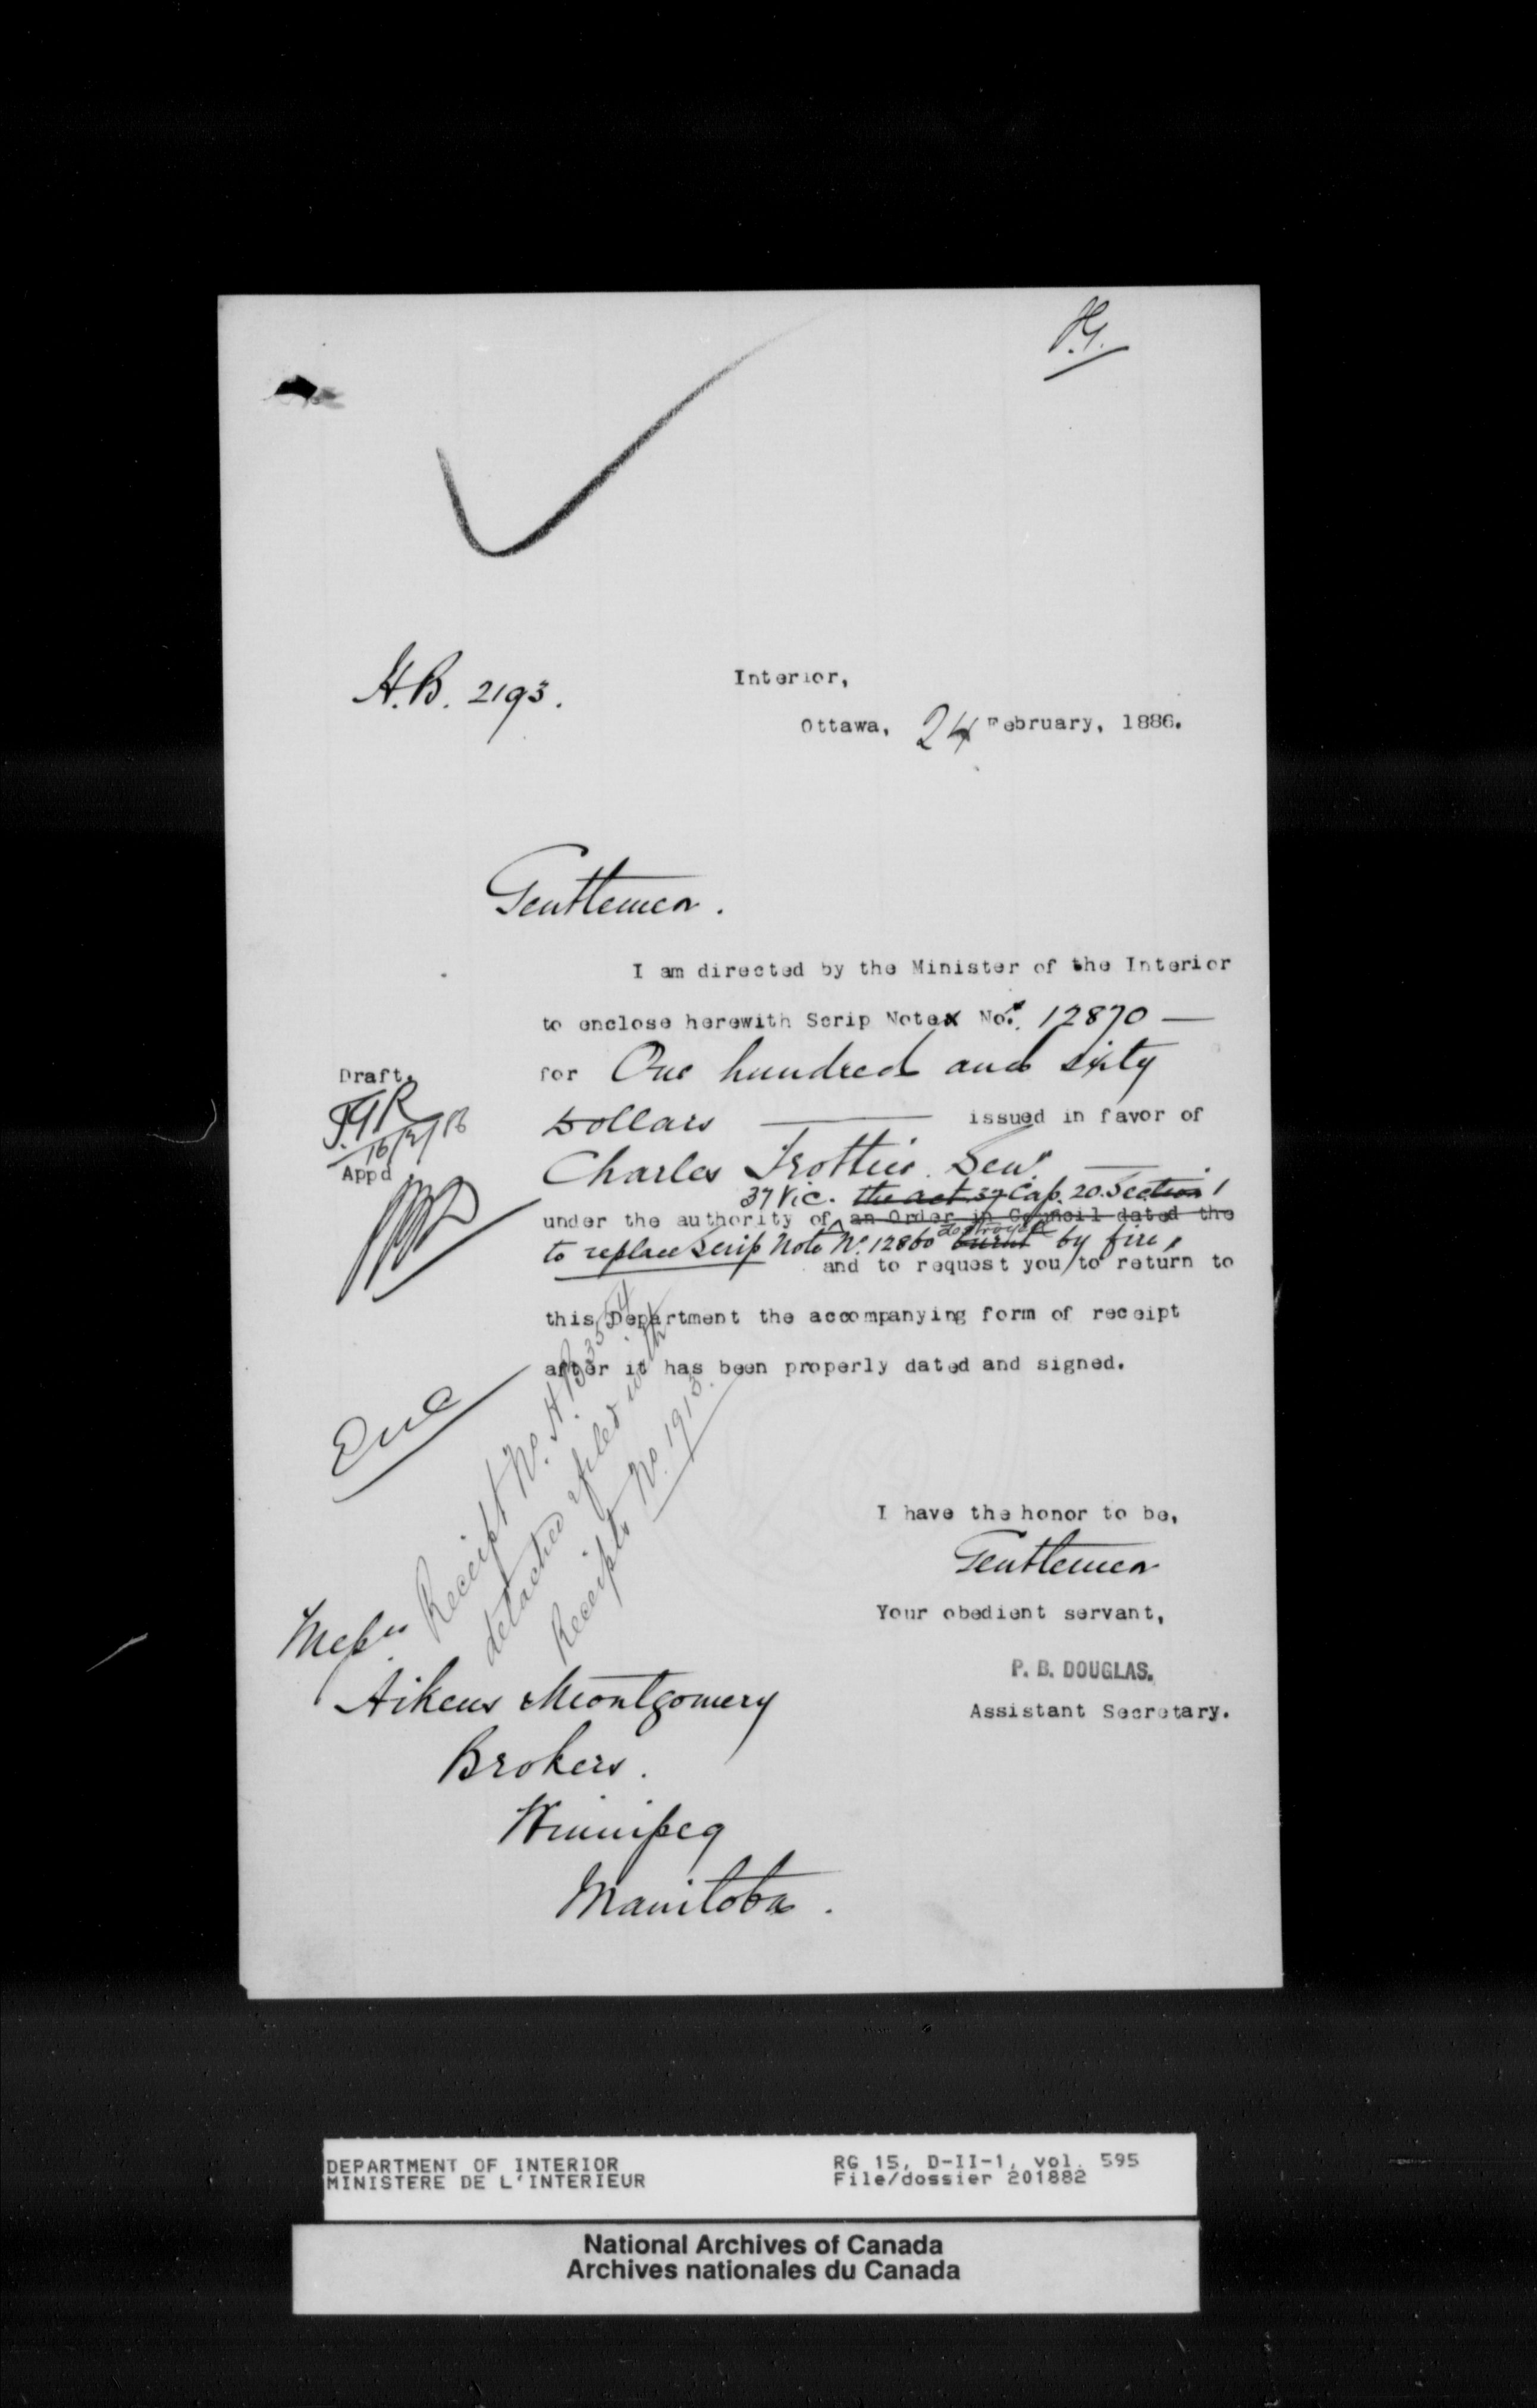 H.B. 2193.
Interior,
Ottawa, 24 February, 1886.
Gentlemen.
I am directed by the Minister of the Interior
to enclose herewith Scrip Notex No. 12870 —
for One hundred and sixty
Draft.
Dollars — issued in favor of
16/2/86
Appd
Charles Trottier Senr. —
37 Vic. the act 37 Cap. 20. Section 1
under the authority of an Order in Council dated the
to replace Scrip Note No. 12860 destroyed burnt by fire,
and to request you to return to
this Department the accompanying form of receipt
after it has been properly dated and signed.
Receipt No. H.B.
detached & filed with
Receipts No. 1913.
I have the honor to be,
Gentlemen
Your obedient servant,
P. B. DOUGLAS.
Assistant Secretary.
Messrs
Aikens & Montgomery
Brokers.
Winnipeg
Manitoba.
DEPARTMENT OF INTERIOR
MINISTERE DE L'INTERIEUR
RG 15, D-II-1, vol. 595
File/dossier 201882
National Archives of Canada
Archives nationales du Canada